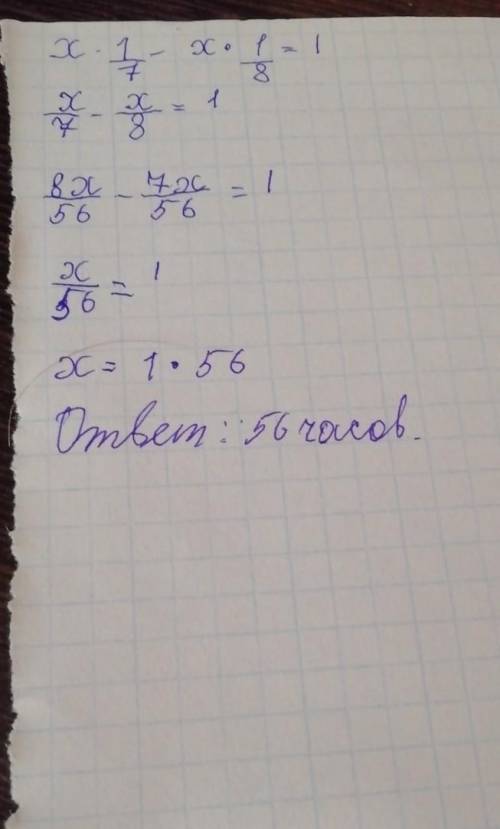 x · 1/7 - x · 1/8 = 1
x/7 - x/8 = 1
8x/56 - 7x/56 = 1
x/56 = 1
x = 1 · 56
Ответ: 56 часов.